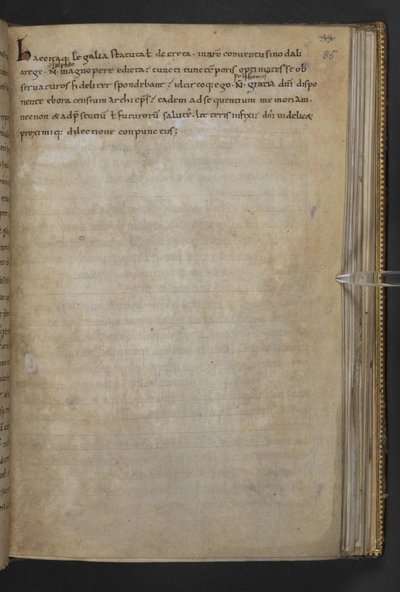 86
Haec itaq; legalia statuta ł decreta · in nr̄o conventu sinodali
a rege · N̄ · magnopere edicta · cuncti tunc tēporis optimates se ob
servaturos fideliter spondebant · idcircoq; ego · N̄ · gratia dn̄i dispo
nente eboracensium archiep̄s · eadem ad sequentium memoriam ·
necnon & ad p̄sentiū ł futurorū salutē · litteris infixi · dn̄i videlic&
proximiq; dilectione conpunctus;